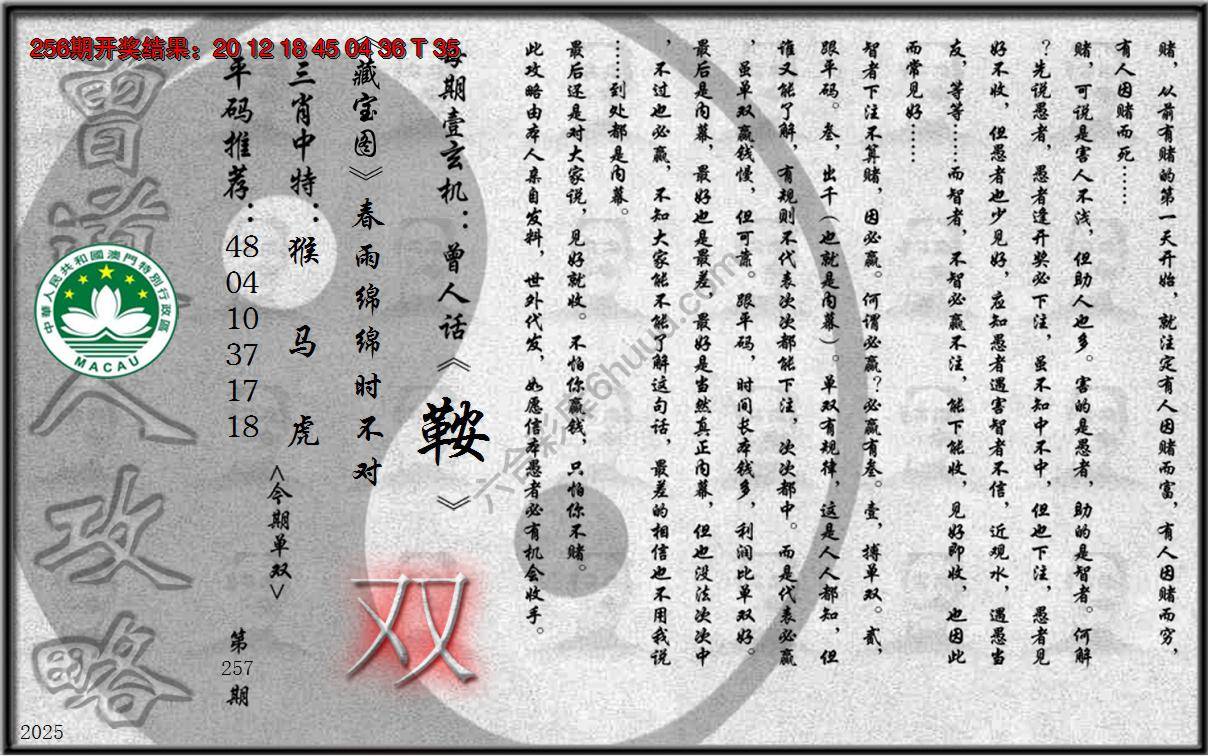 256期开奖结果：20 12 18 45 04 36 T 35
赌，从前有赌的第一天开始，就注定有人因赌而富，有人因赌而穷，
有人因赌而死……
赌，可说是害人不浅，但助人也多。害的是愚者，助的是智者。何解
？先说愚者，愚者逢开奖必下注，虽不知中不中，但也下注，愚者见
好不收，但愚者也少见好，应知愚者遇害智者不信，近观水，遇愚当
友，等等……而智者，不智必赢不注，能下能收，见好即收，也因此
而常见好……
智者下注不算赌，因必赢。何谓必赢？必赢有叁。壹，搏单双。贰，
跟平码。叁，出千（也就是内幕）。单双有规律，这是人人都知，但
谁又能了解，有规则不代表次次都能下注，次次都中。而是代表必赢
，虽单双赢钱慢，但可靠。跟平码，时间长本钱多，利润比单双好。
最后是内幕，最好也是最差，最好是当然真正内幕，但也没法次次中
，不过也必赢，不知大家能不能了解这句话，最差的相信也不用我说
……到处都是内幕。
最后还是对大家说，见好就收。不怕你赢钱，只怕你不赌。
此攻略由本人亲自发料，世外代发，如愿信本愚者必有机会收手。
每期壹玄机：曾人话《鞍》
《藏宝图》春雨绵绵时不对
双
三肖中特：猴 马 虎
<今期单双>
平码推荐：48 04 10 37 17 18
第257期
曾道人攻略
中華人民共和國澳門特別行政區
MACAU
六合彩库6huuu.com
2025